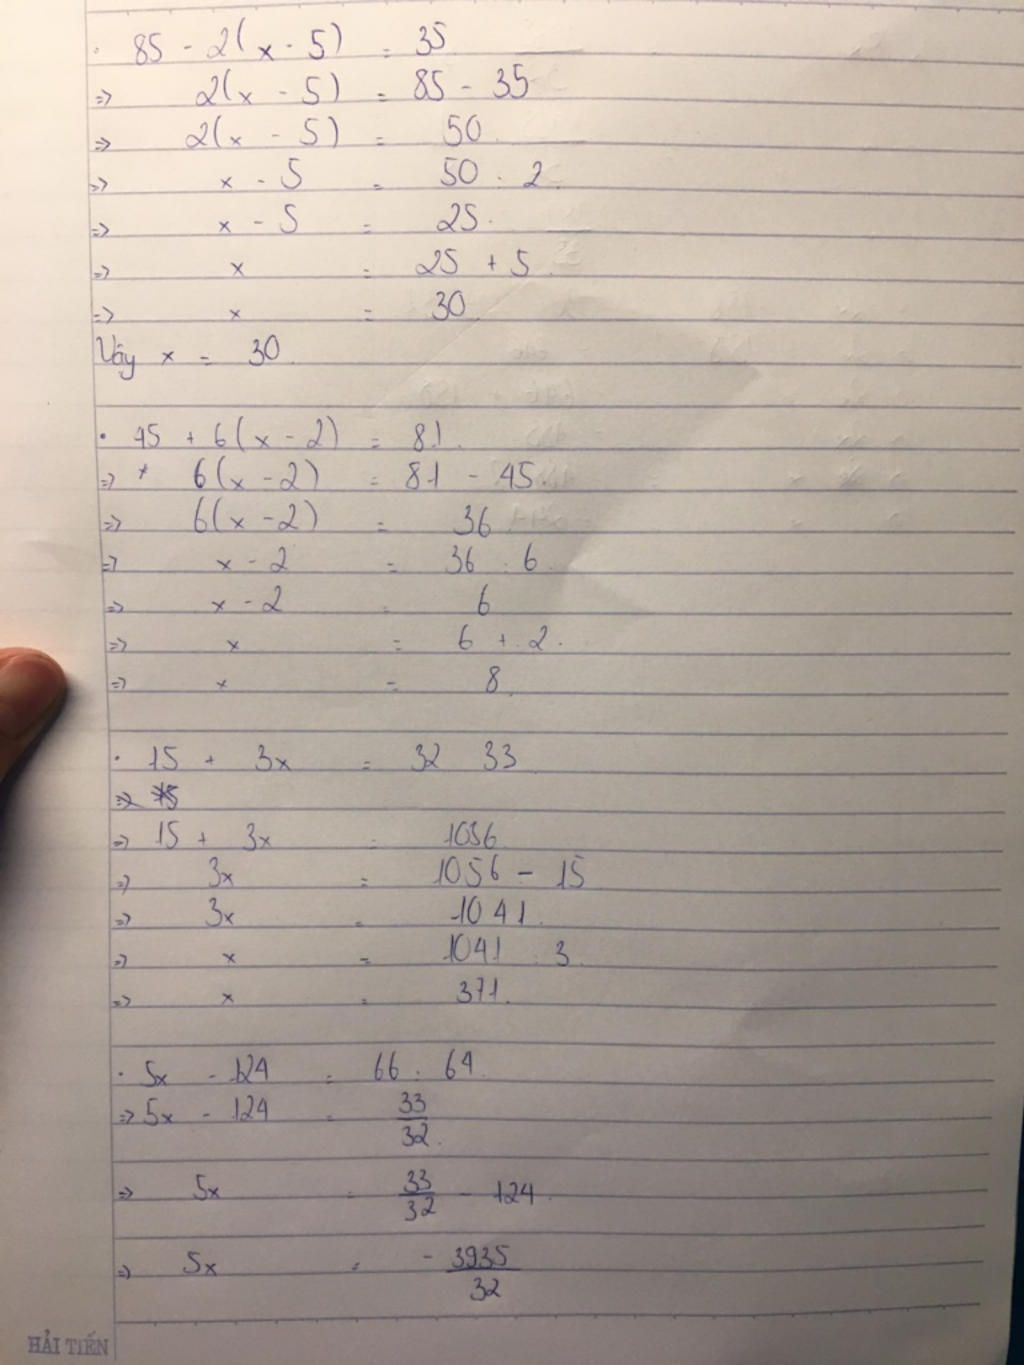 · 85 - 2(x - 5) = 35
=> 2(x - 5) = 85 - 35
=> 2(x - 5) = 50
=> x - 5 = 50 : 2
=> x - 5 = 25
=> x = 25 + 5
=> x = 30
Vậy x = 30
· 45 + 6(x - 2) = 81
=> 6(x - 2) = 81 - 45
=> 6(x - 2) = 36
=> x - 2 = 36 : 6
=> x - 2 = 6
=> x = 6 + 2
=> x = 8
· 15 + 3x = 32 33
=> 15 + 3x = 1056
=> 3x = 1056 - 15
=> 3x = 1041
=> x = 1041 : 3
=> x = 371
· 5x - 124 = 66 : 64
=> 5x - 124 = 33/32
=> 5x = 33/32 - 124
=> 5x = - 3935/32
HẢI TIẾN